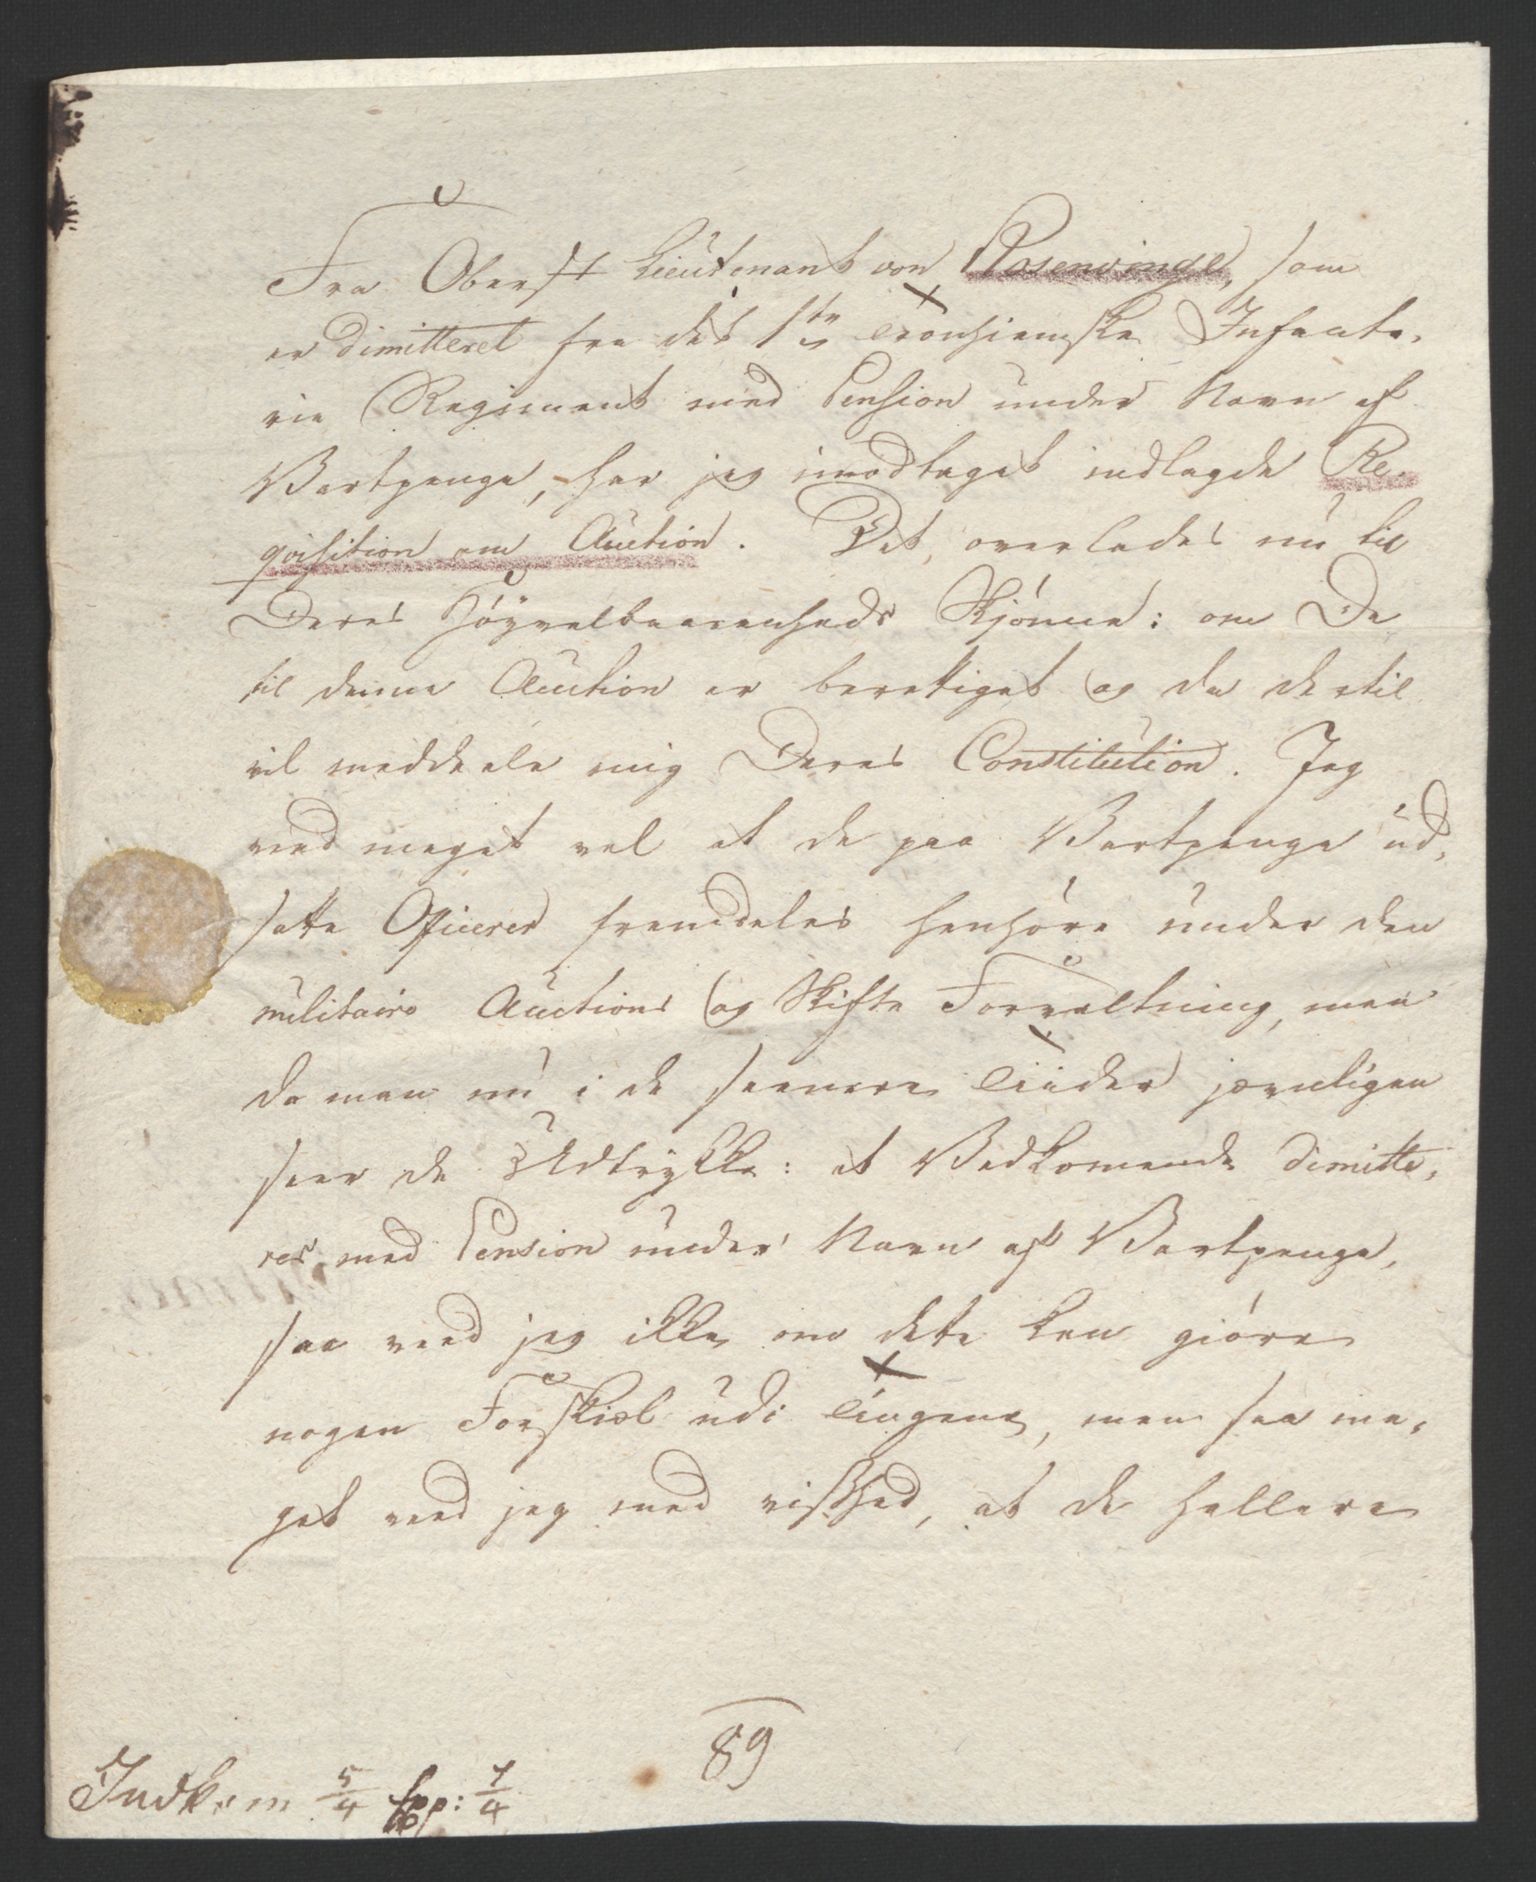 Fra Oberst Lieutenant von Rosenvinge, som
er dimitteret fra det 1ste Tronhiemske Infante,
rie Regiment med Pension under Navn af
Vartpenge, har jeg imodtaget indlagde Re,
qvisition om Auction. Det overlades nu til
Deres Høyvelbaarenheds Skjønne: om De
til denne Auction er berettiget og da dertil
vil meddeele mig Deres Constitution. Jeg
veed meget vel at de paa Vartpenge ud,
satte Officerer fremdeles henhøre under den
militaire Auctions og Skifte Forvaltning, men
da man nu i de seenere Tiider jævnligen
seer de Udtrykke: at Vedkomende dimitte,
res med Pension under Navn af Vartpenge,
saa veed jeg ikke om dette kan giøre
nogen Forskiæl udi Tingene, men saa me,
get veed jeg med visshed, at de hellere
89
Indkom 5/4 Exp: 7/4